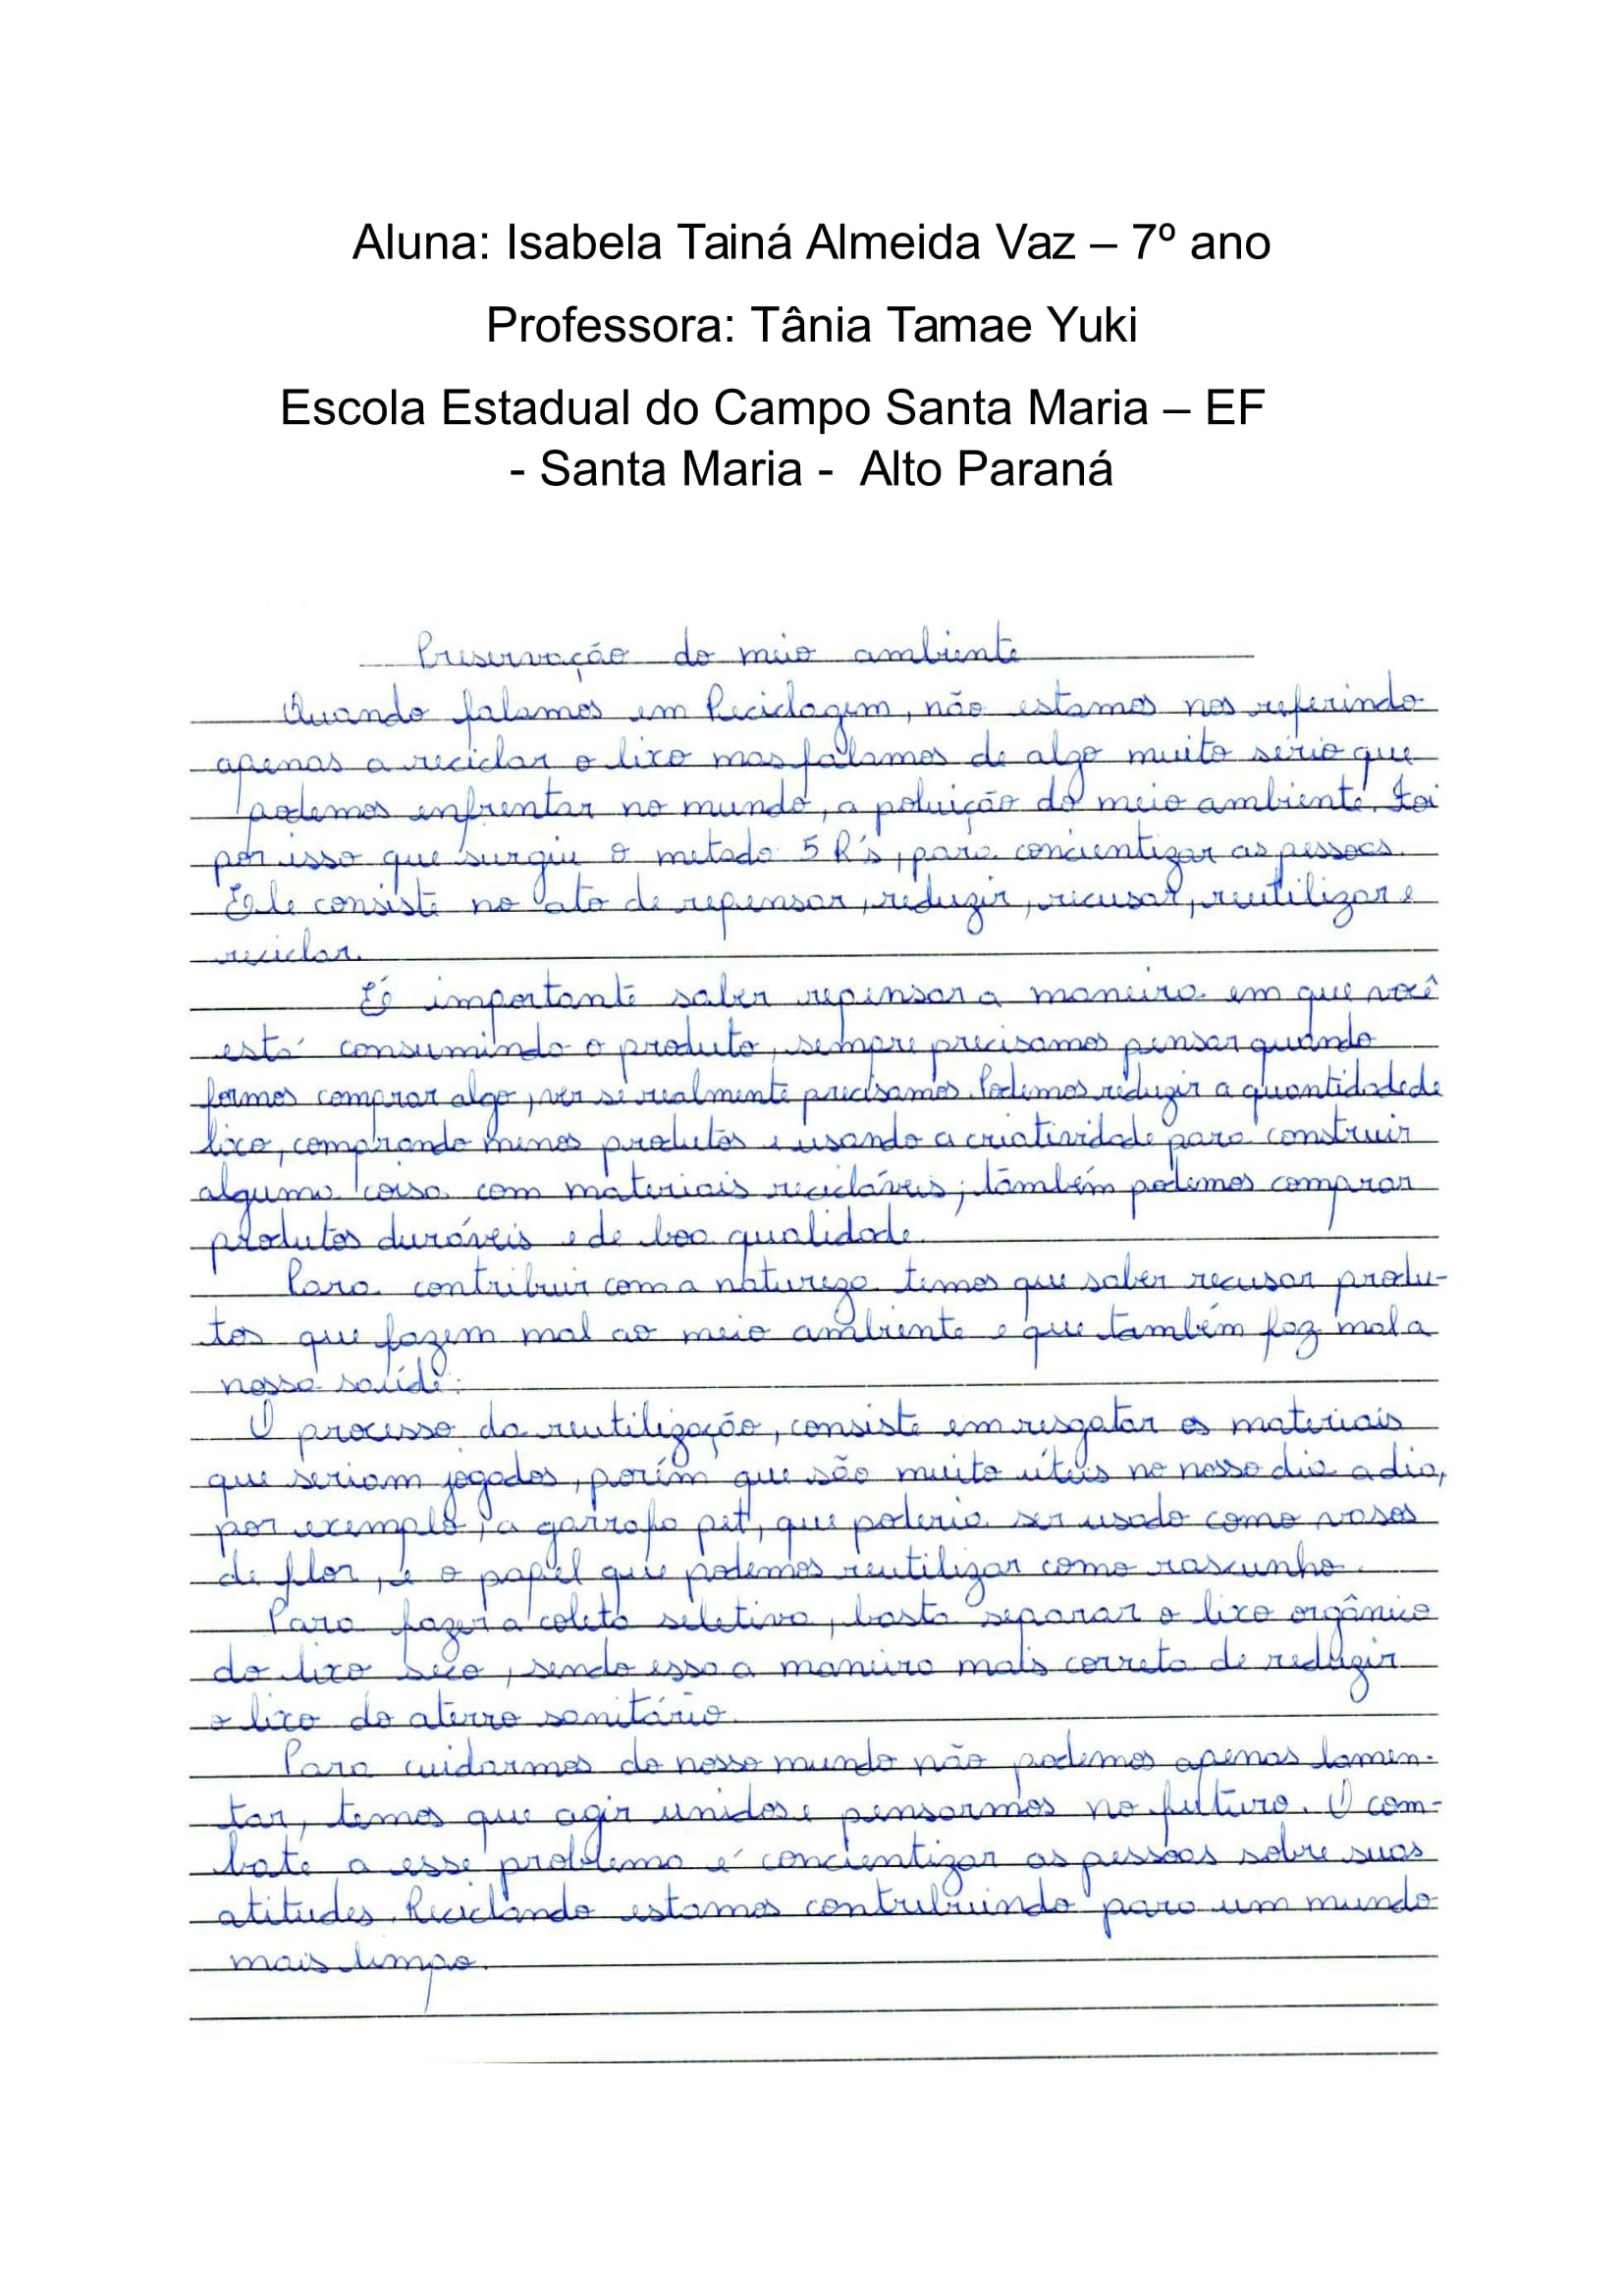 Aluna: Isabela Tainá Almeida Vaz – 7º ano
Professora: Tânia Tamae Yuki
Escola Estadual do Campo Santa Maria – EF
- Santa Maria - Alto Paraná
Preservação do meio ambiente
Quando falamos em Reciclagem, não estamos nos referindo
apenas a reciclar o lixo mas falamos de algo muito sério que
podemos enfrentar no mundo, a poluição do meio ambiente. Foi
por isso que surgiu o metodo 5 R's, para concientizar as pessoas.
Ele consiste no ato de repensar, reduzir, recusar, reutilizar e
reciclar.
É importante saber repensar a maneira em que você
está consumindo o produto, sempre precisamos pensar quando
formos comprar algo, ver se realmente precisamos. Podemos reduzir a quantidade de
lixo, comprando menos produtos e usando a criatividade para construir
alguma coisa com materiais recicláveis; também podemos comprar
produtos duráveis e de boa qualidade.
Para contribuir com a natureza temos que saber recusar produ-
tos que fazem mal ao meio ambiente e que também faz mal a
nossa saúde.
O processo da reutilização, consiste em resgatar os materiais
que seriam jogados, porém que são muito úteis no nosso dia a dia,
por exemplo, a garrafa pet, que poderia ser usado como vasos
de flor, e o papel que podemos reutilizar como rascunho.
Para fazer a coleta seletiva, basta separar o lixo orgânico
do lixo seco, sendo essa a maneira mais correta de reduzir
o lixo do aterro sanitário.
Para cuidarmos do nosso mundo não podemos apenas lamen-
tar, temos que agir unidos e pensarmos no futuro. O com-
bate a esse problema é concientizar as pessoas sobre suas
atitudes. Reciclando estamos contribuindo para um mundo
mais limpo.